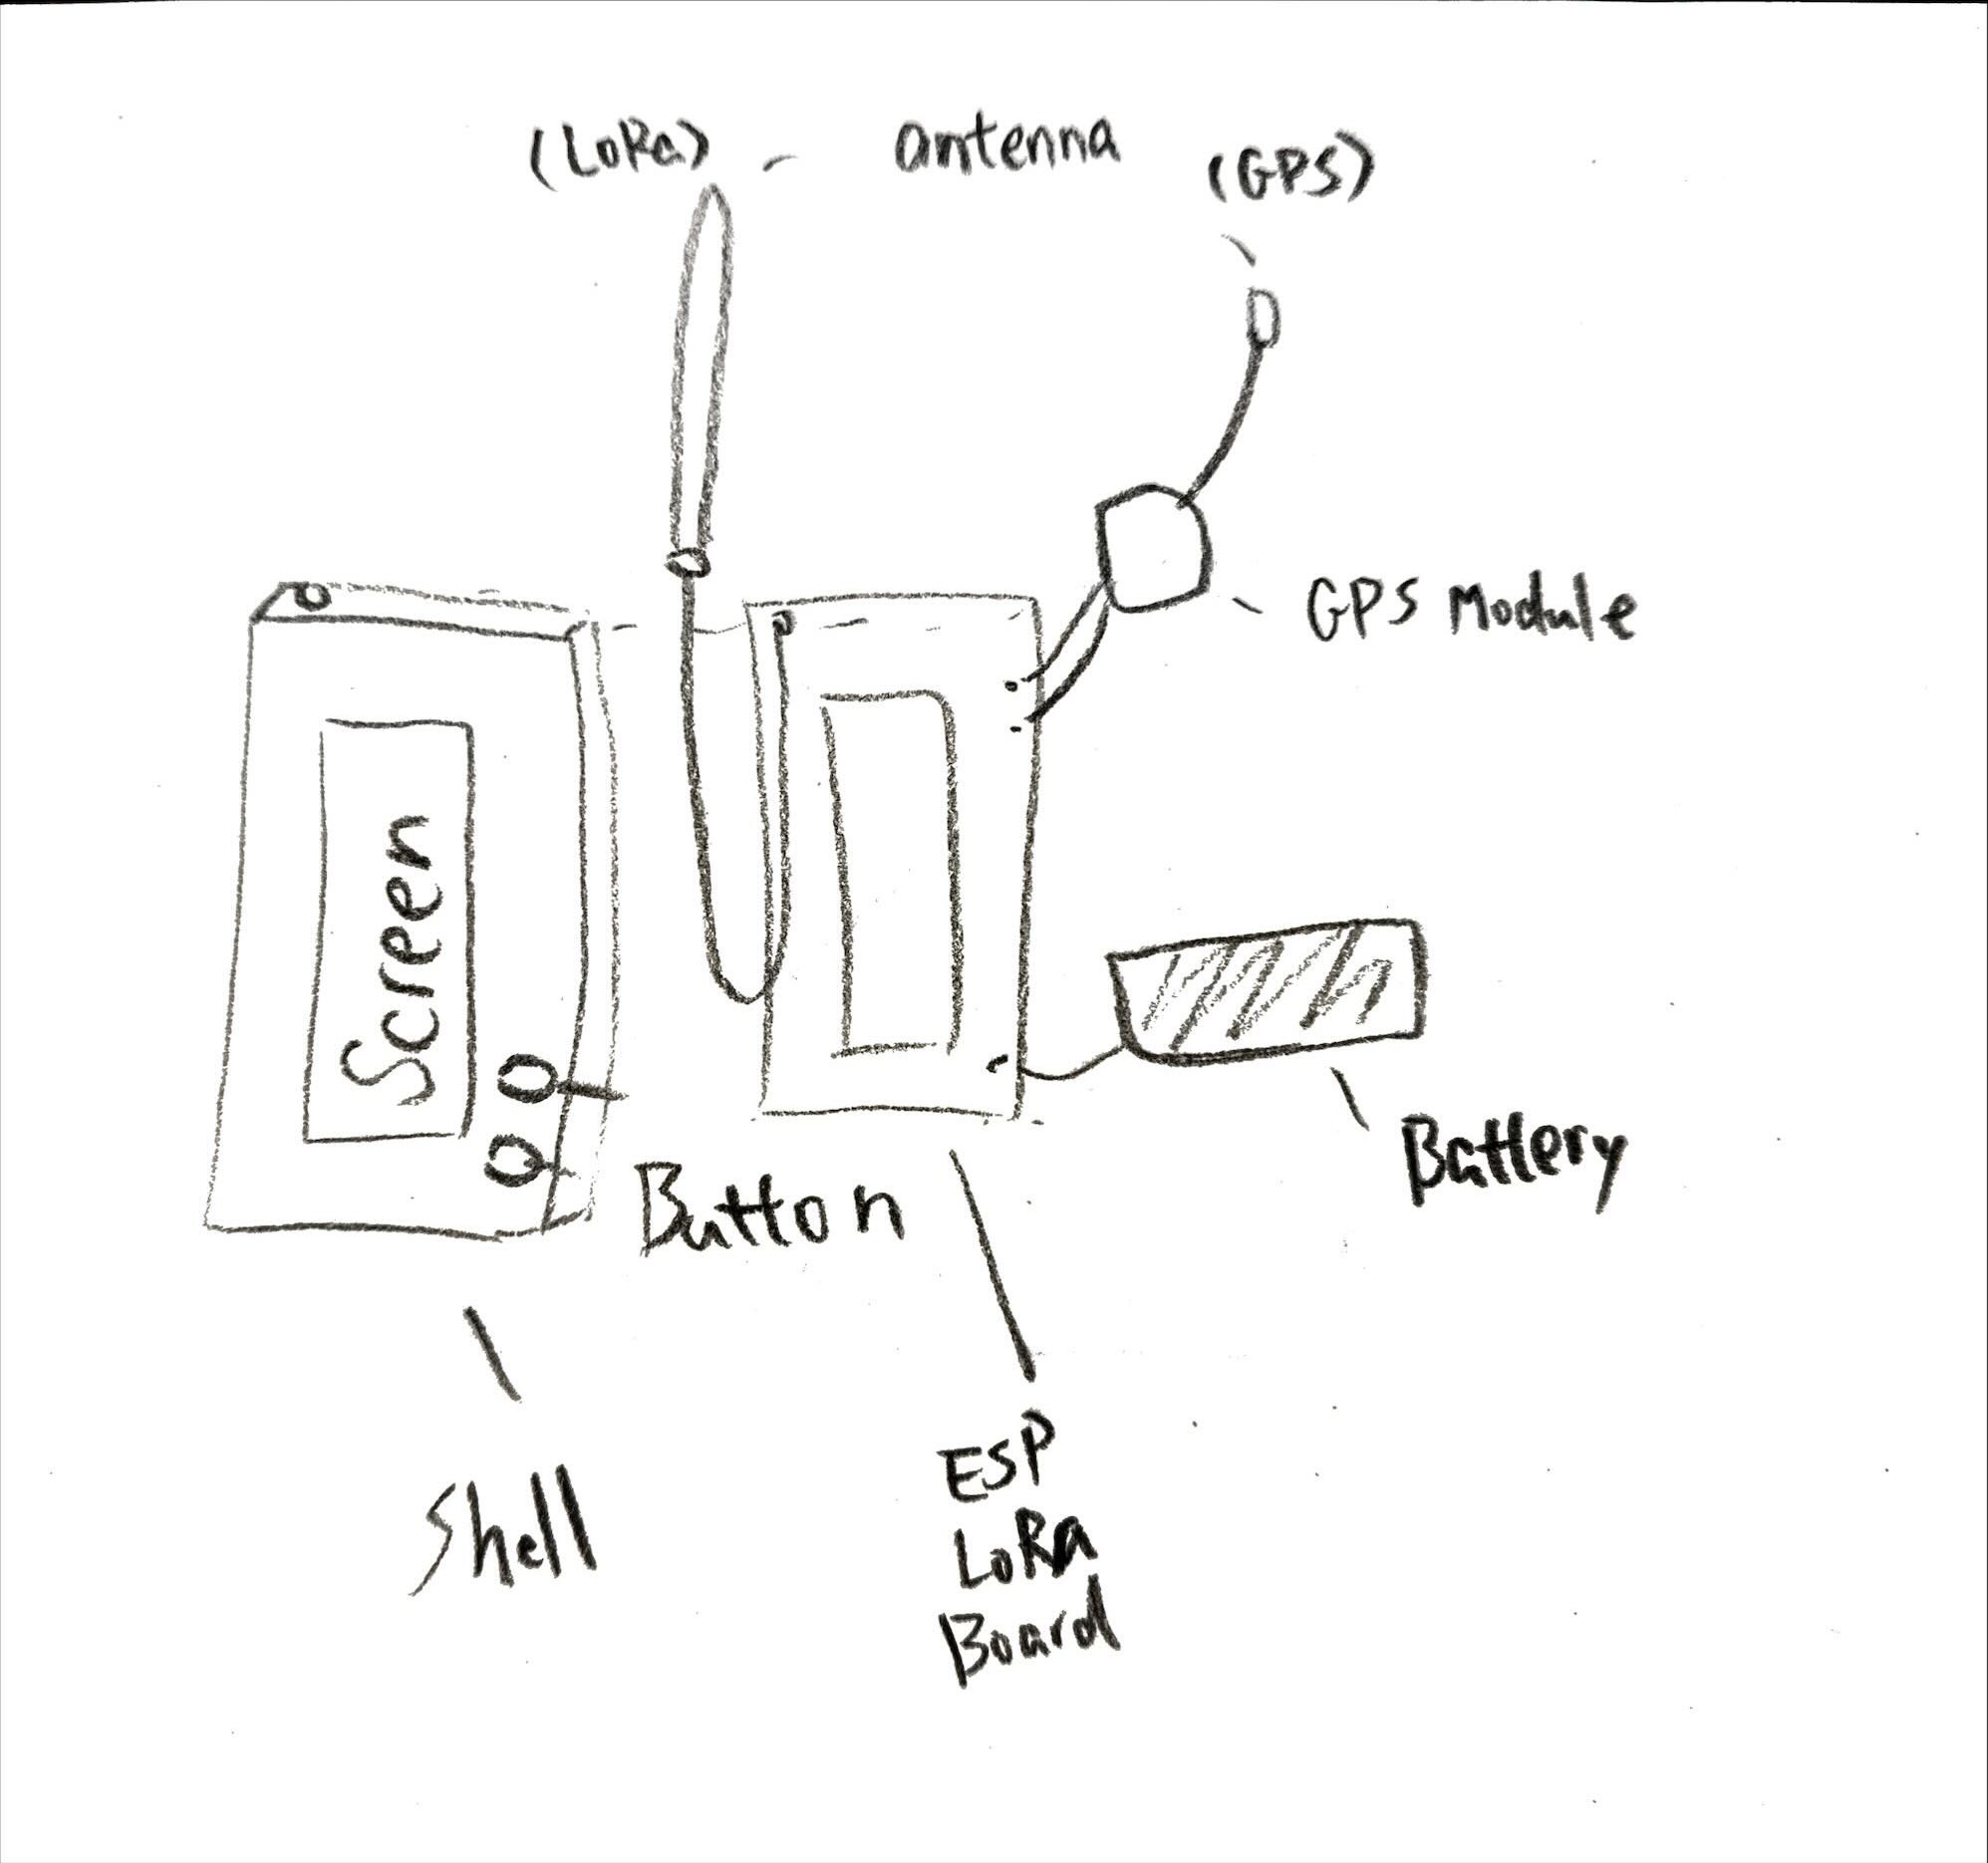 (LoRa) - antenna (GPS)
GPS Module
Screen
Battery
Button
Shell
ESP
LoRa
Board